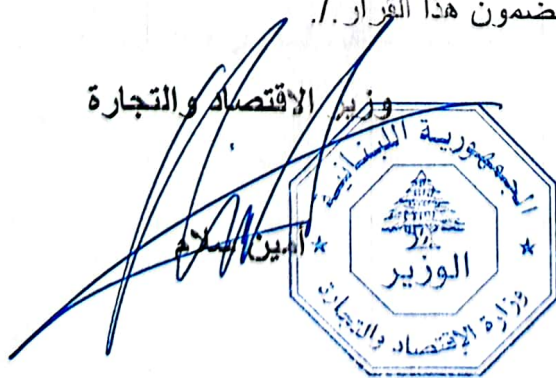 ضمون هذا القرار ./.
وزير الاقتصاد والتجارة
أمين سلام
الجمهورية اللبنانية
الوزير
وزارة الإقتصاد والتجارة